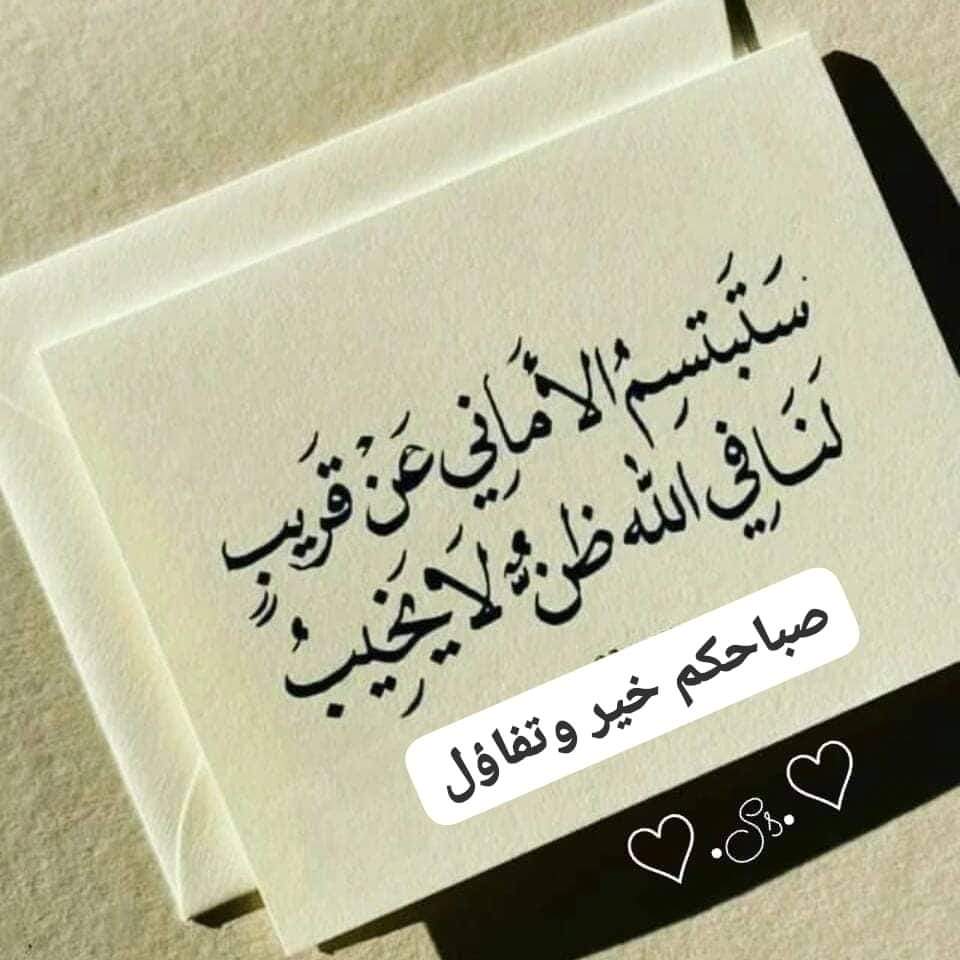 سَتَبتَسِمُ الأَمَانِي عَنْ قَرَيبٍ
لَنَا فِي الله ظَنٌّ لَا يَخِيبُ
صباحكم خير وتفاؤل
♡.Ss.♡